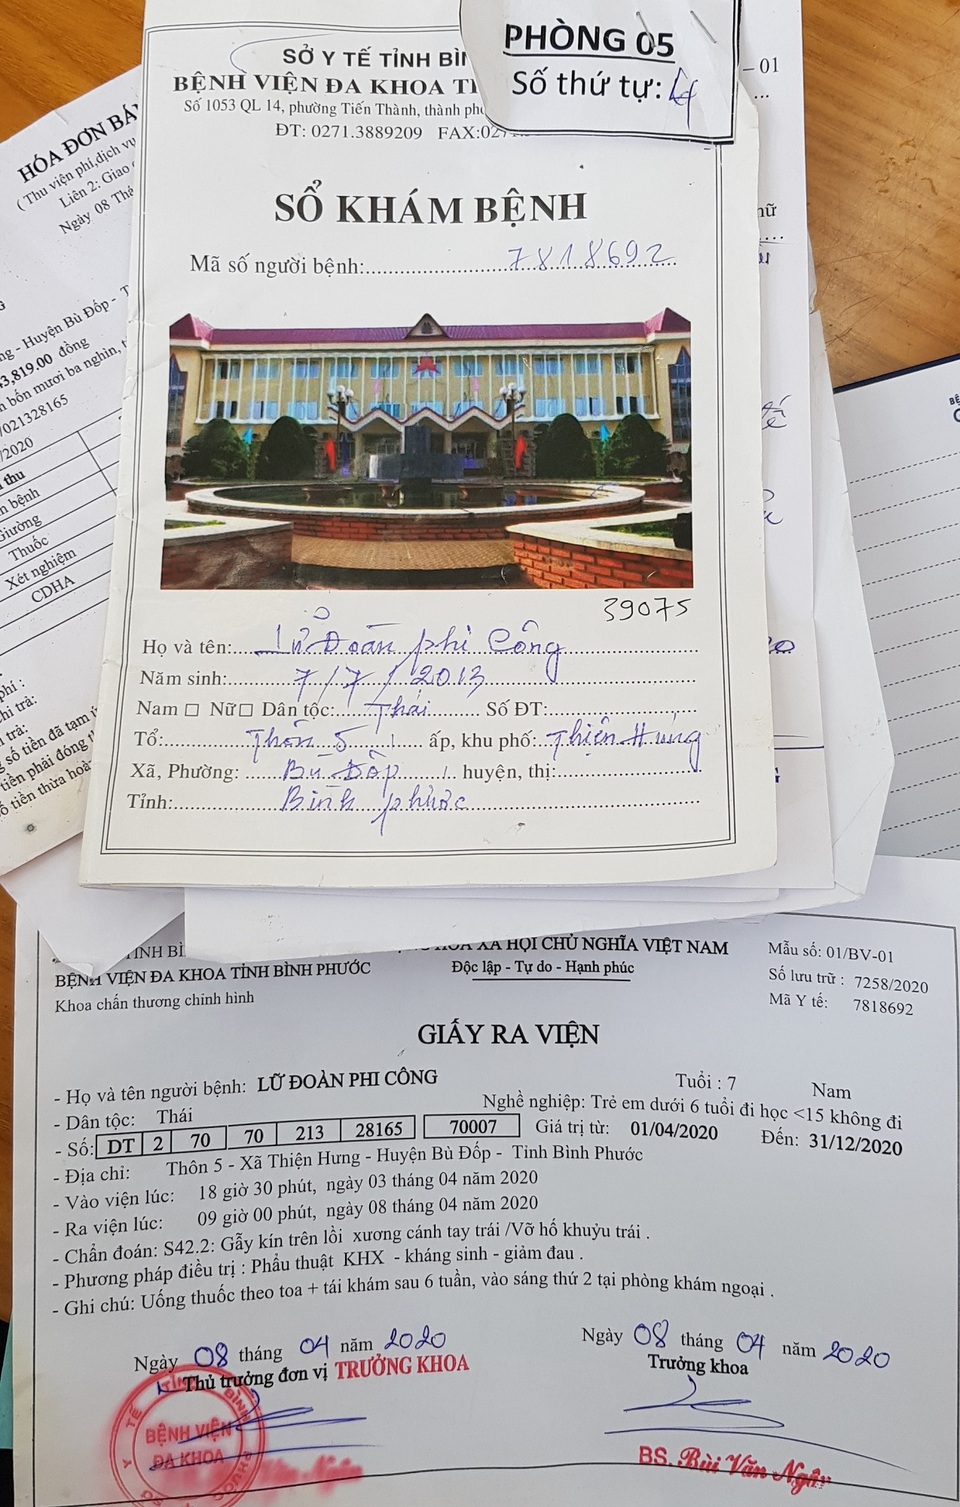 PHÒNG 05
Số thứ tự: 4
SỞ Y TẾ TỈNH BÌN
BỆNH VIỆN ĐA KHOA TỈ
Số 1053 QL 14, phường Tiến Thành, thành phố
ĐT: 0271.3889209 FAX:027
SỔ KHÁM BỆNH
Mã số người bệnh: 7818692
39075
Họ và tên: Lữ Đoàn phi Công
Năm sinh: 7/7/2013
Nam □ Nữ □ Dân tộc: Thái Số ĐT:
Tổ: Thôn 5 ấp, khu phố: Thiện Hưng
Xã, Phường: Bù Đốp huyện, thị:
Tỉnh: Bình phước
HÓA ĐƠN BÁ
(Thu viện phí,dịch vụ
Liên 2: Giao
Ngày 08 Thá
ng - Huyện Bù Đốp - T
3,819.00 đồng
n bốn mươi ba nghìn, t
/021328165
/2020
thu
n bệnh
Giường
Thuốc
Xét nghiệm
CDHA
phí :
chi trả:
trả:
số tiền đã tạm
tiền phải đóng
ố tiền thừa hoà
– 01
BỆNH VIỆN ĐA KHOA TỈNH BÌNH PHƯỚC
Khoa chấn thương chỉnh hình
HÒA XÃ HỘI CHỦ NGHĨA VIỆT NAM
Độc lập - Tự do - Hạnh phúc
Mẫu số: 01/BV-01
Số lưu trữ : 7258/2020
Mã Y tế: 7818692
GIẤY RA VIỆN
- Họ và tên người bệnh: LỮ ĐOÀN PHI CÔNG Tuổi : 7 Nam
- Dân tộc: Thái Nghề nghiệp: Trẻ em dưới 6 tuổi đi học <15 không đi
- Số: DT 2 70 70 213 28165 70007 Giá trị từ: 01/04/2020 Đến: 31/12/2020
- Địa chỉ: Thôn 5 - Xã Thiện Hưng - Huyện Bù Đốp - Tỉnh Bình Phước
- Vào viện lúc: 18 giờ 30 phút, ngày 03 tháng 04 năm 2020
- Ra viện lúc: 09 giờ 00 phút, ngày 08 tháng 04 năm 2020
- Chẩn đoán: S42.2: Gẫy kín trên lồi xương cánh tay trái /Vỡ hố khuỷu trái .
- Phương pháp điều trị : Phẩu thuật KHX - kháng sinh - giảm đau .
- Ghi chú: Uống thuốc theo toa + tái khám sau 6 tuần, vào sáng thứ 2 tại phòng khám ngoại .
Ngày 08 tháng 04 năm 2020
Thủ trưởng đơn vị TRƯỞNG KHOA
Ngày 08 tháng 04 năm 2020
Trưởng khoa
BỆNH VIỆN
ĐA KHOA
BS. Bùi Văn Ngân